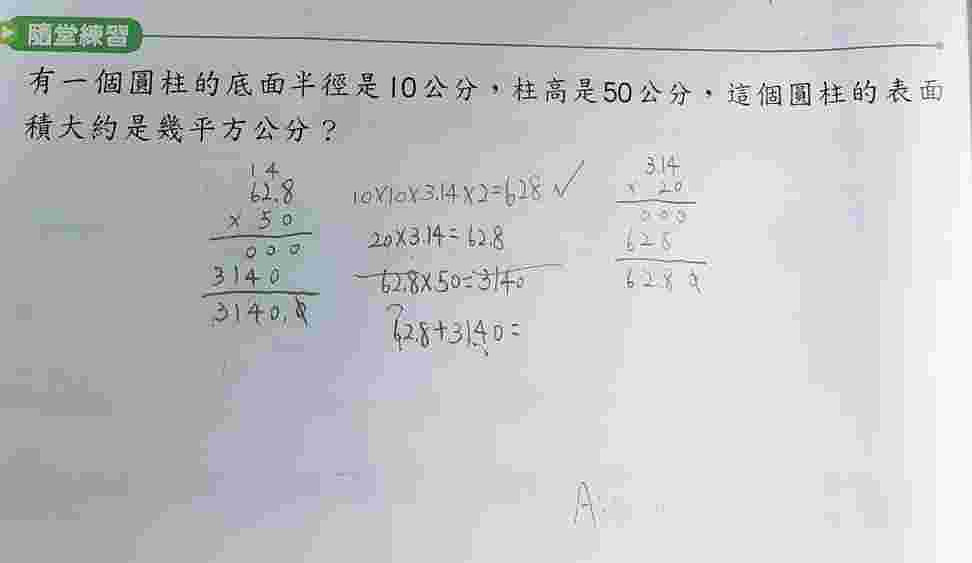 隨堂練習
有一個圓柱的底面半徑是10公分，柱高是50公分，這個圓柱的表面
積大約是幾平方公分？
14
62.8
× 50
000
3140
3140.0
10×10×3.14×2=628 ✓
20×3.14=62.8
62.8×50=3140
62.8+3140=
3.14
× 20
000
628
6280
A: